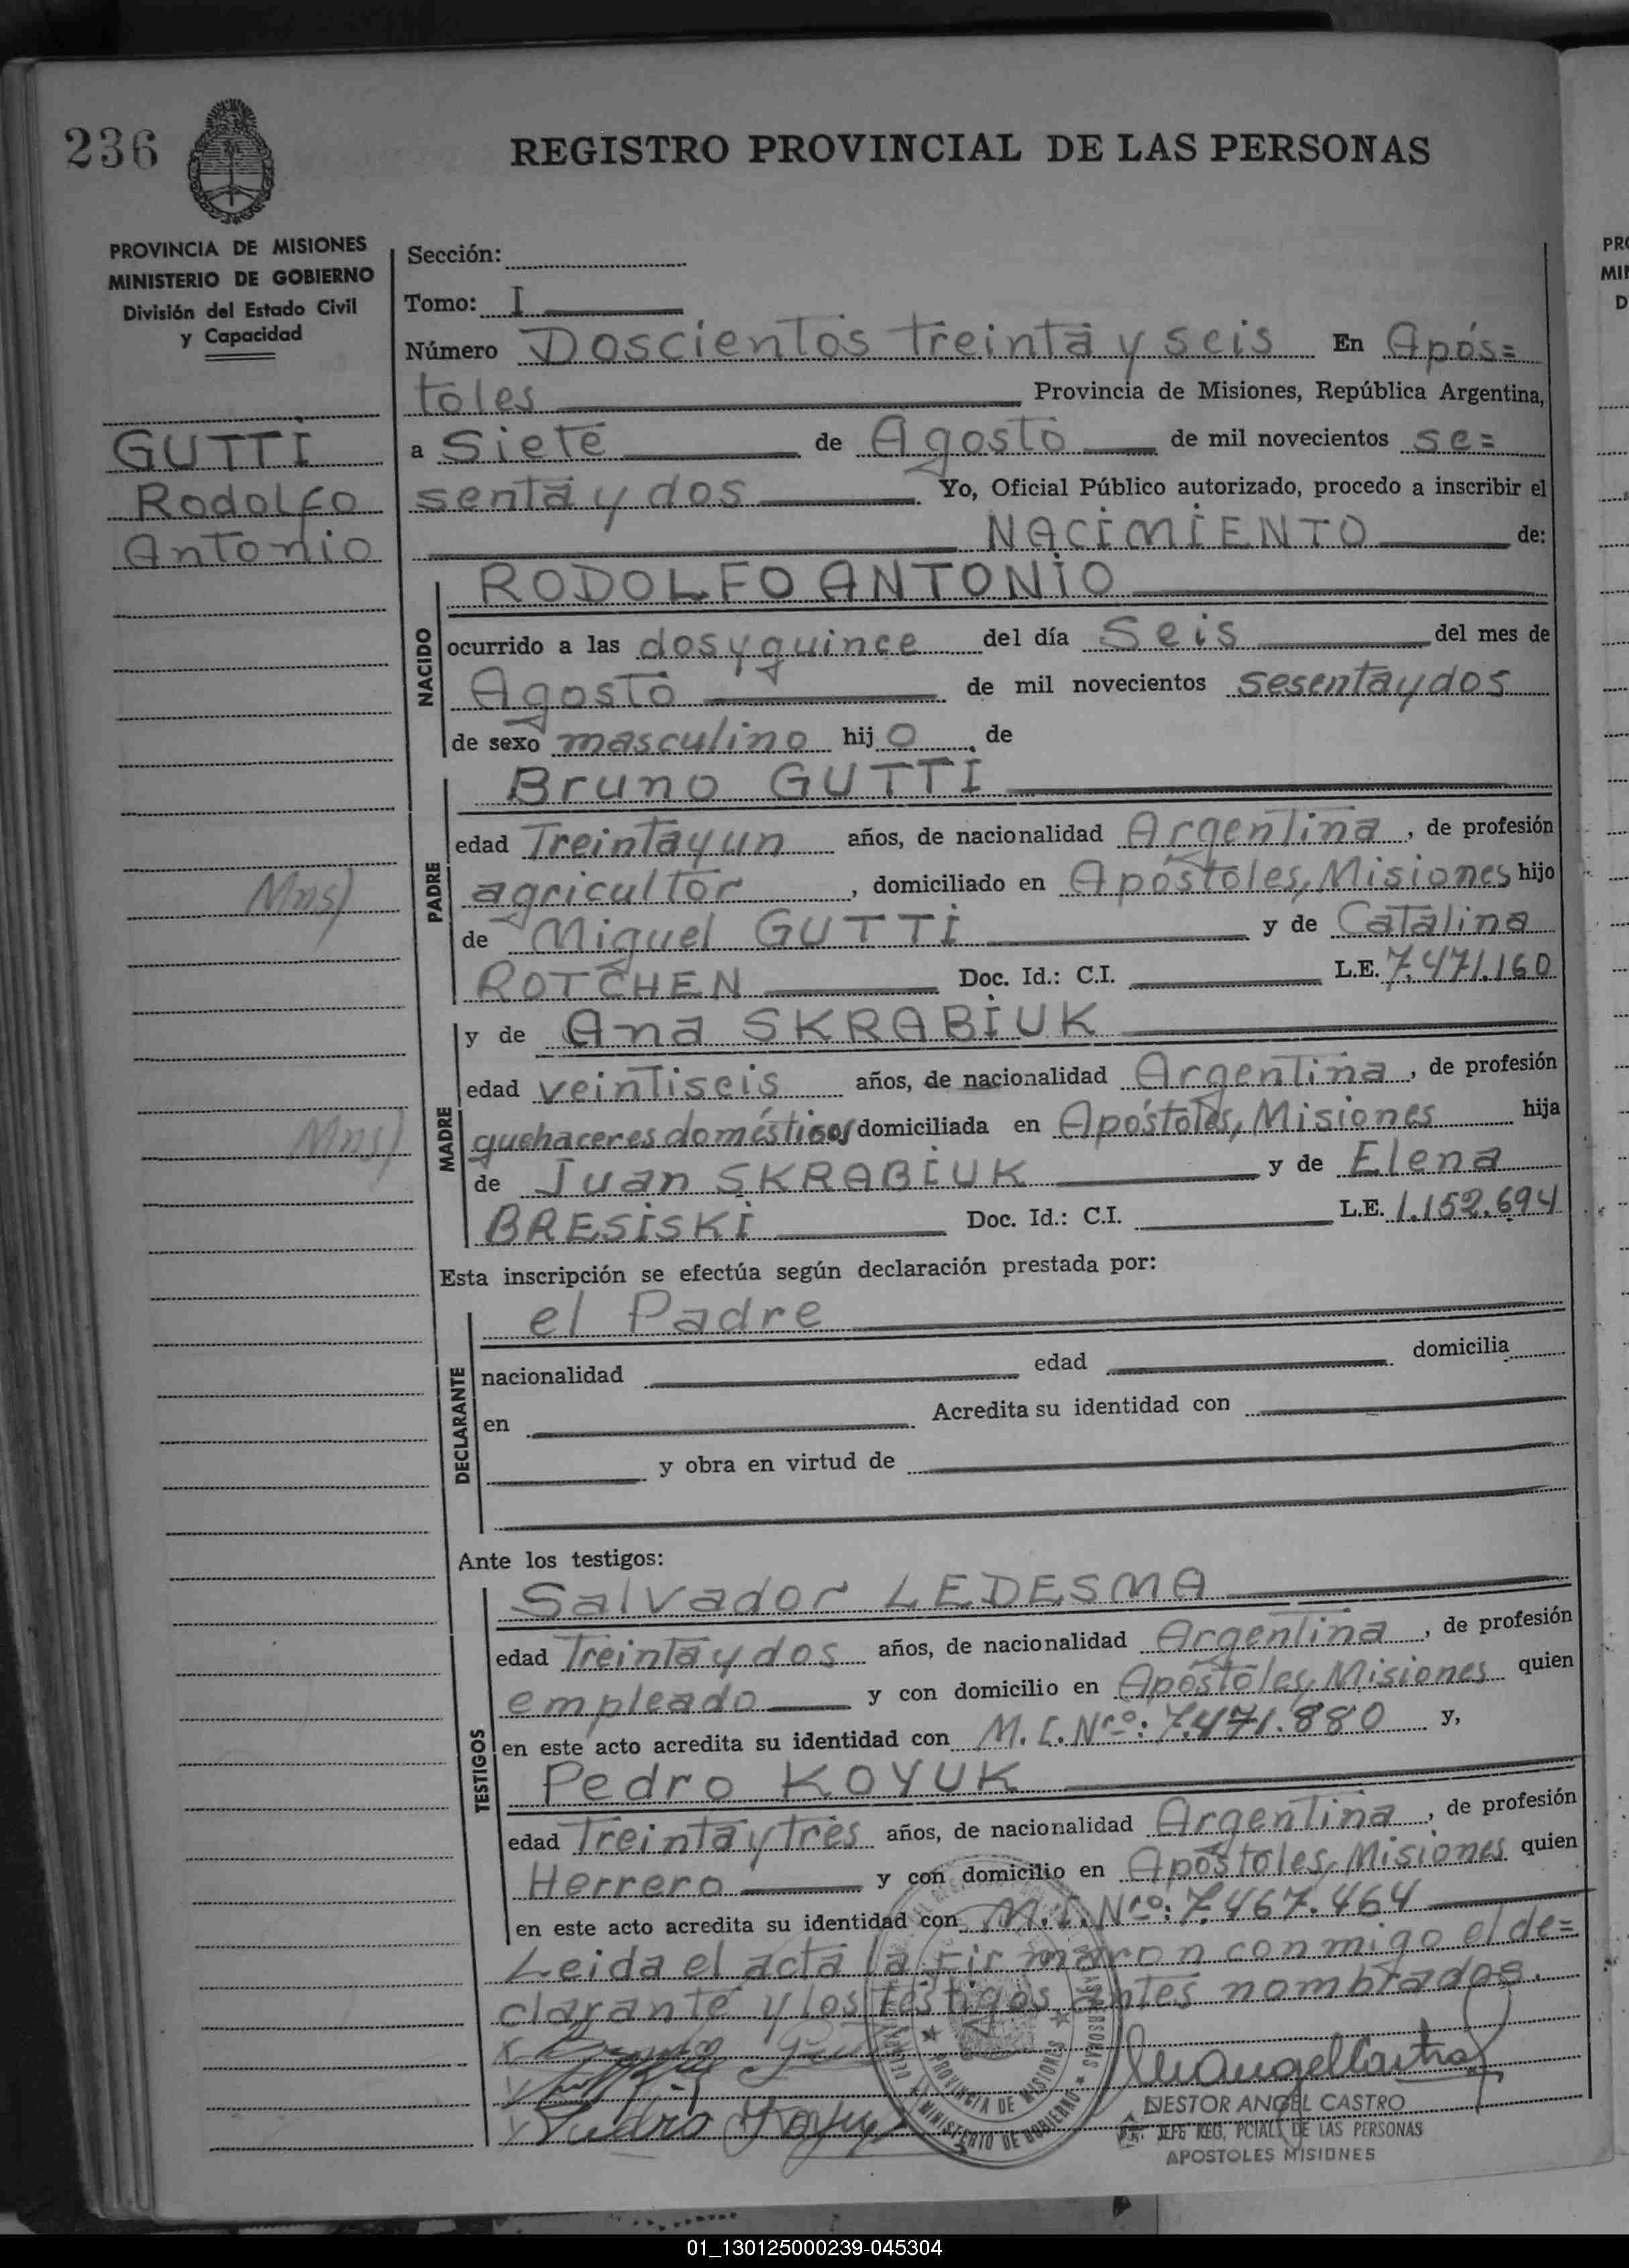 236
REGISTRO PROVINCIAL DE LAS PERSONAS
PROVINCIA DE MISIONES
MINISTERIO DE GOBIERNO
División del Estado Civil
y Capacidad
GUTTI
Rodolfo
Antonio
Mns)
Mns)
Sección:
Tomo: I
Número Doscientos treinta y seis En Após=
toles Provincia de Misiones, República Argentina,
a Siete de Agosto de mil novecientos se=
senta y dos Yo, Oficial Público autorizado, procedo a inscribir el
NACIMIENTO de:
NACIDO
RODOLFO ANTONIO
ocurrido a las dos y quince del día Seis del mes de
Agosto de mil novecientos sesenta y dos
de sexo masculino hij o de
PADRE
Bruno GUTTI
edad Treinta y un años, de nacionalidad Argentina, de profesión
agricultor, domiciliado en Apóstoles, Misiones hijo
de Miguel GUTTI y de Catalina
ROTCHEN Doc. Id.: C.I. L.E. 7.471.160
MADRE
y de Ana SKRABIUK
edad veintiseis años, de nacionalidad Argentina, de profesión
quehaceres domésticos domiciliada en Apóstoles, Misiones hija
de Juan SKRABIUK y de Elena
BRESISKI Doc. Id.: C.I. L.E. 1.152.694
Esta inscripción se efectúa según declaración prestada por:
DECLARANTE
el Padre
nacionalidad edad domicilia
en Acredita su identidad con
y obra en virtud de
Ante los testigos:
TESTIGOS
Salvador LEDESMA
edad Treinta y dos años, de nacionalidad Argentina, de profesión
empleado y con domicilio en Apóstoles, Misiones quien
en este acto acredita su identidad con M.I. Nro: 7.471.880 y,
Pedro KOYUK
edad Treinta y tres años, de nacionalidad Argentina, de profesión
Herrero y con domicilio en Apóstoles, Misiones quien
en este acto acredita su identidad con M.I. Nro: 7.467.464
Leida el acta la firmaron conmigo el de=
clarante y los testigos antes nombrados.
Bruno
Pedro Koyuk
PROVINCIA DE MISIONES
MINISTERIO DE GOBIERNO
NESTOR ANGEL CASTRO
JEFE REG. PCIAL. DE LAS PERSONAS
APOSTOLES MISIONES
01_130125000239-045304